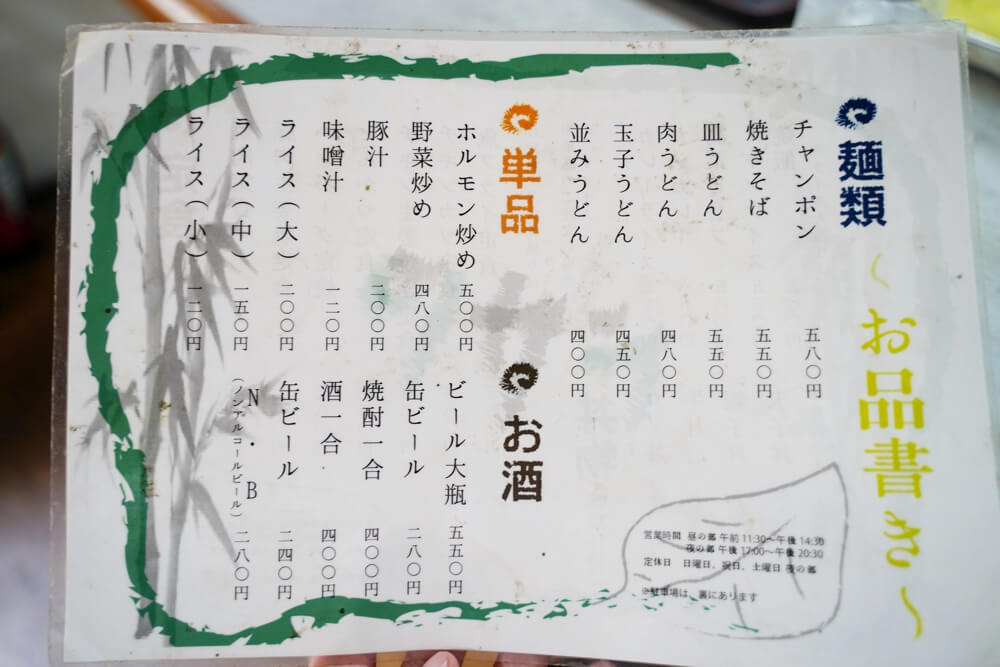 〜お品書き〜
麺類
チャンポン 五八〇円
焼きそば 五五〇円
皿うどん 五五〇円
肉うどん 四八〇円
玉子うどん 四五〇円
並みうどん 四〇〇円
単品
ホルモン炒め 五〇〇円
野菜炒め 四八〇円
豚汁 二〇〇円
味噌汁 一二〇円
ライス（大） 二〇〇円
ライス（中） 一五〇円
ライス（小） 一二〇円
お酒
ビール大瓶 五五〇円
缶ビール 二八〇円
焼酎一合 四〇〇円
酒一合 四〇〇円
缶ビール 二四〇円
N・B 二八〇円
（ノンアルコールビール）
営業時間 昼の部 午前 11:30〜午後 14:30
夜の部 午後 17:00〜午後 20:30
定休日 日曜日、祝日、土曜日 夜の部
※駐車場は、裏にあります